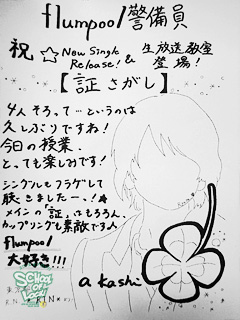 flumpool警備員
祝 ☆New Single Release! & 生放送教室登場!
【証さがし】
4人そろって…というのは
久しぶりですね!
今日の授業、
とっても楽しみです!
シングルもフラゲして
聴きましたーっ!★
メインの「証」はもちろん、
カップリングも素敵です人
flumpool
大好き!!!
akashi
SCHOOL OF LOCK!
R.N ★RIN★